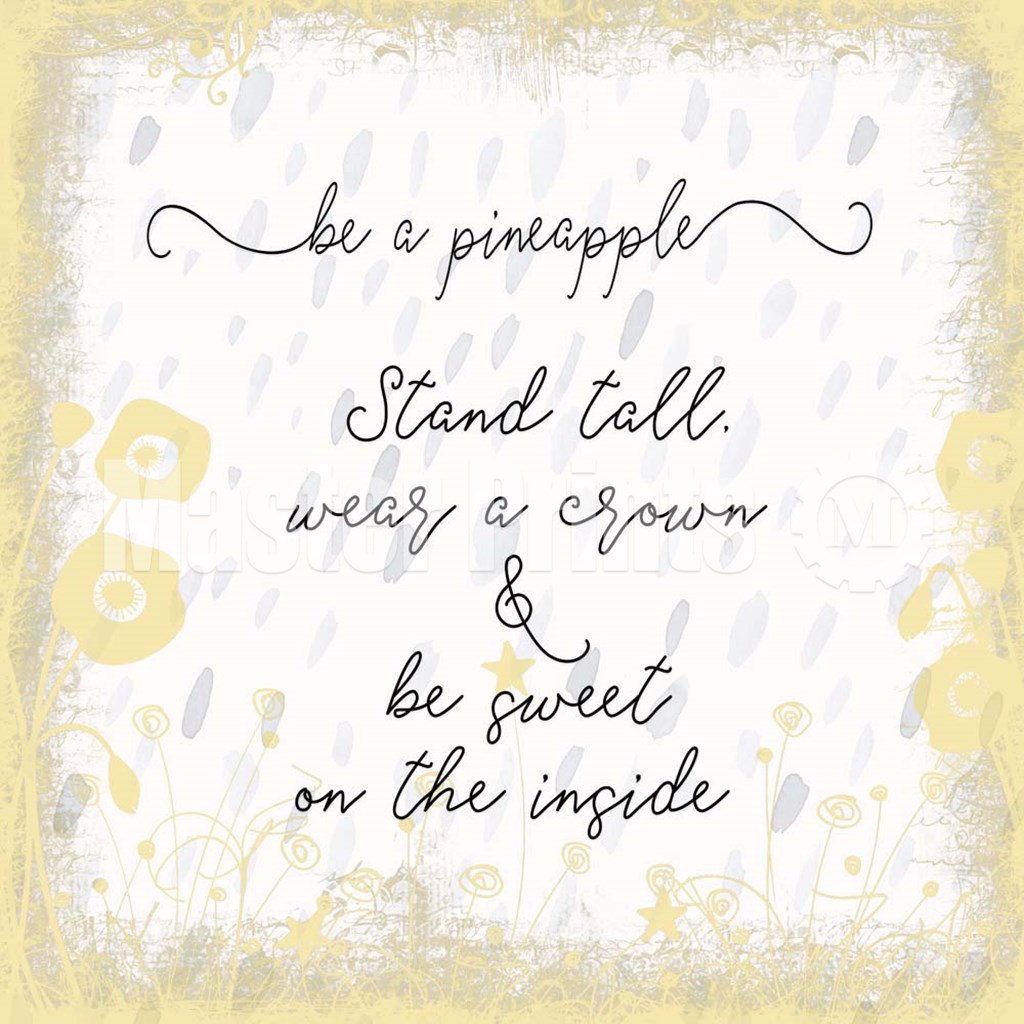 be a pineapple
Stand tall,
wear a crown
Master Prints M
&
be sweet
on the inside